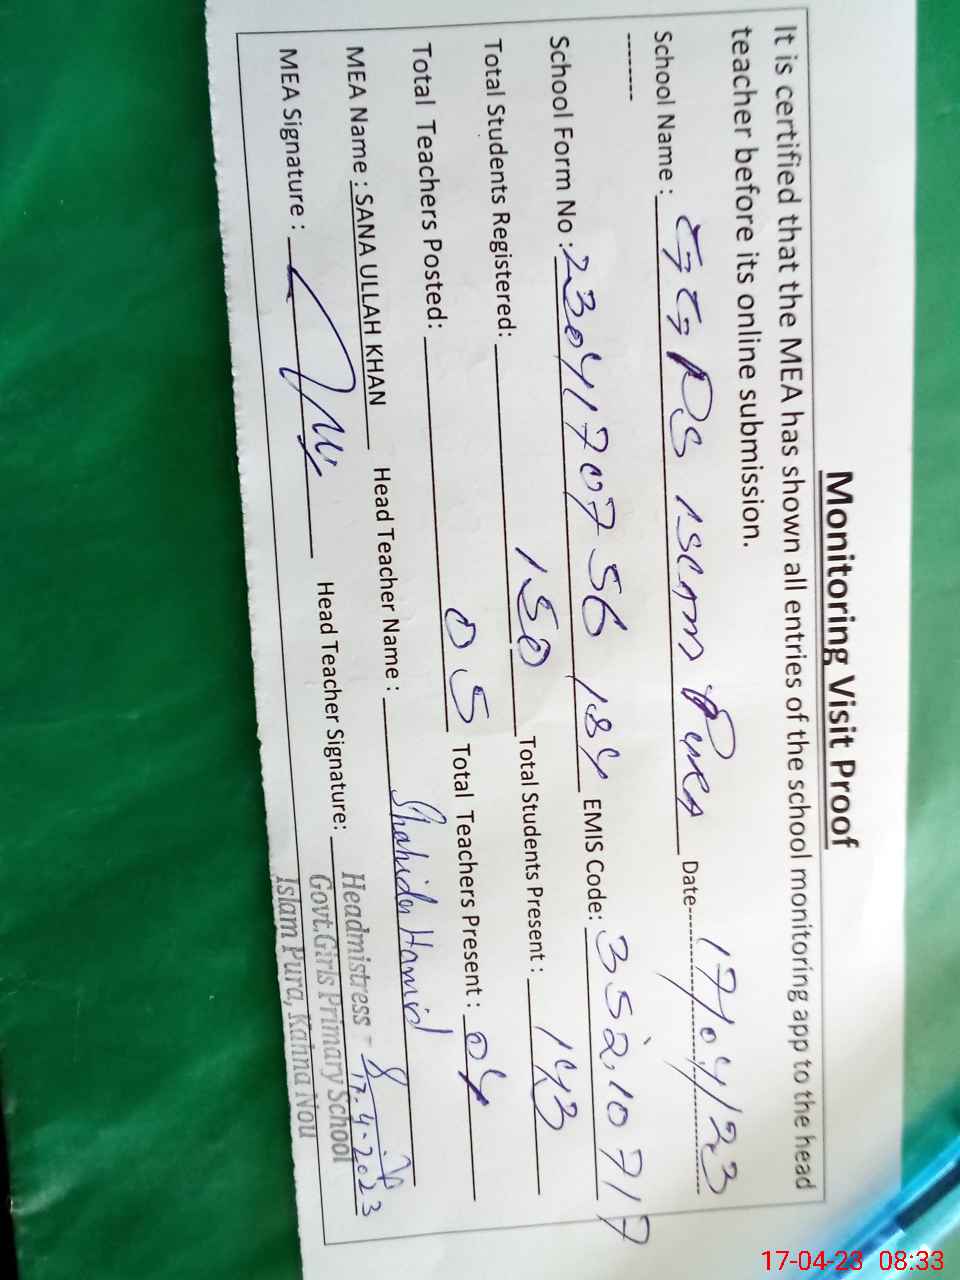 Monitoring Visit Proof
It is certified that the MEA has shown all entries of the school monitoring app to the head
teacher before its online submission.
School Name : GGPS Islam Pura Date 17/04/23
School Form No : 2304170756184 EMIS Code: 35210717
Total Students Registered: 150 Total Students Present : 143
Total Teachers Posted: 05 Total Teachers Present : 04
MEA Name : SANA ULLAH KHAN Head Teacher Name : Shahida Hamid
MEA Signature : Head Teacher Signature:
17-4-2023
Headmistress
Govt.Girls Primary School
Islam Pura, Kahna Nou
17-04-23 08:33